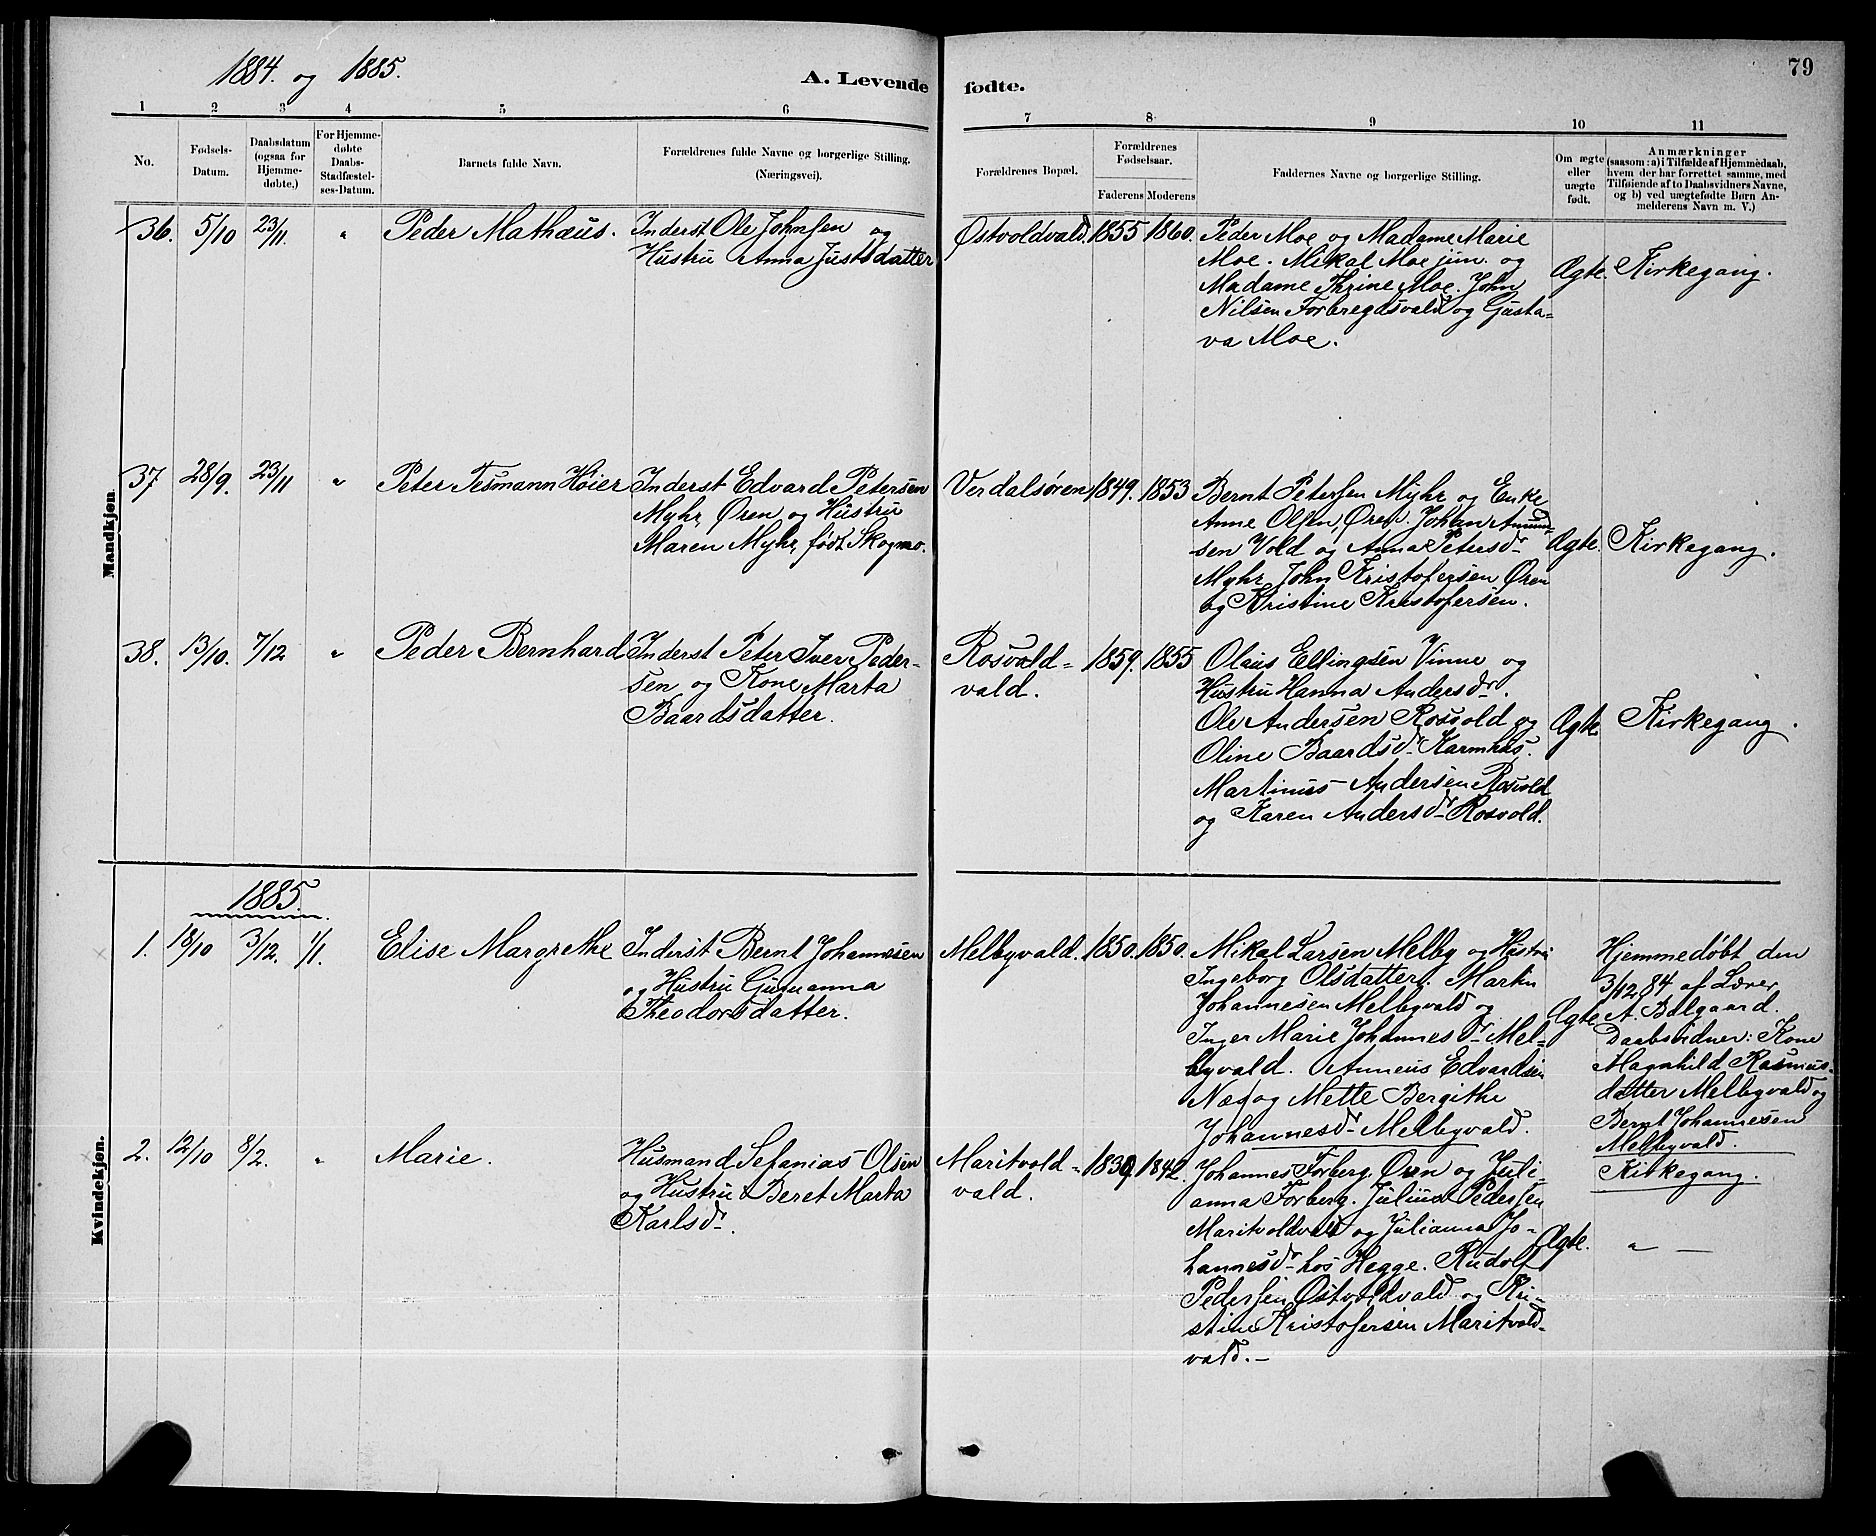 1884. og 1885.
A. Levende fødte.
79
1 2 3 4 5 6 7 8 9 10 11
No.
Fødsels-
Datum.
Daabsdatum
(ogsaa for
Hjemme-
døbte.)
For Hjemme-
døbte
Daabs-
Stadfæstel-
ses-Datum.
Barnets fulde Navn.
Forældrenes fulde Navne og borgerlige Stilling.
(Næringsvei).
Forældrenes Bopæl.
Forældrenes
Fødselsaar.
Faderens Moderens
Faddernes Navne og borgerlige Stilling.
Om ægte
eller
uægte
født.
Anmærkninger
(saasom: a) i Tilfælde af Hjemmedaab,
hvem der har forrettet samme, med
Tilføiende af to Daabsvidners Navne,
og b) ved uægtefødte Børn An-
melderens Navn m. V.)
Mandkjøn.
36. 5/10 23/11. " Peder Mathæus.
Inderst Ole Johnsen og
Hustru Anna Justsdatter
Østvoldvald. 1855 1860.
Peder Moe og Madame Marie
Moe. Mikal Moe jun. og
Madame Thrine Moe. John
Nilsen Forbregdsvald og Gusta-
va Moe.
Ægte. Kirkegang.
37 28/9. 23/11 " Peter Tesmann Høier
Inderst Edvard Petersen
Myhr, Øren og Hustru
Maren Myhr, født Skogmo.
Verdalsøren 1849. 1853
Bernt Petersen Myhr og Enke
Anne Olsen, Øren. Johan Amund-
sen Vold og Anna Petersdr
Myhr John Kristofersen Øren
og Kristine Kristofersen.
Ægte. Kirkegang.
38. 13/10. 7/12 " Peder Bernhard
Inderst Peter Iver Peder-
sen og Kone Marta
Baardsdatter.
Rosvold-
vald.
1859. 1855
Olaus Ellingsen Vinne og
Hustru Hanna Andersdr.
Ole Andersen Rosvold og
Oline Baardsdr Karmhus.
Martinus Andersen Rosvold
og Karen Andersdr Rosvold.
Ægte. Kirkegang.
1885.
Kvindekjøn.
1. 18/10 3/12. 1/1. Elise Margrethe
Inderst Bernt Johannesen
og Hustru Gunuanna
Theodorsdatter.
Melbyvald. 1850. 1850.
Mikal Larsen Melby og Hustru
Ingeborg Olsdatter. Martin
Johannesen Melbyvald og
Inger Marie Johannesdr Mel-
byvald. Anneus Edvardsen
Næs og Mette Bergithe
Johannesdr Melbyvald.
Ægte
Hjemmedøbt den
3/12 84 af Lærer
A. Balgaard.
Daabsvidner: Kone
Magnhild Rasmus-
datter Melbyvald og
Bernt Johannesen
Melbyvald.
Kirkegang.
2. 12/10 8/2. " Marie.
Husmand Sefanias Olsen
og Hustru Beret Marta
Karlsdr.
Maritvold-
vald.
1839 1842.
Johannes Forberg, Øren og Juli-
anna Forberg. Julius Pedersen
Maritvoldvald og Julianna Jo-
hannesdr hos Hegge. Rudolf
Pedersen Østvoldvald og Kri-
stine Kristofersen Maritvold-
vald. —
Ægte. " —